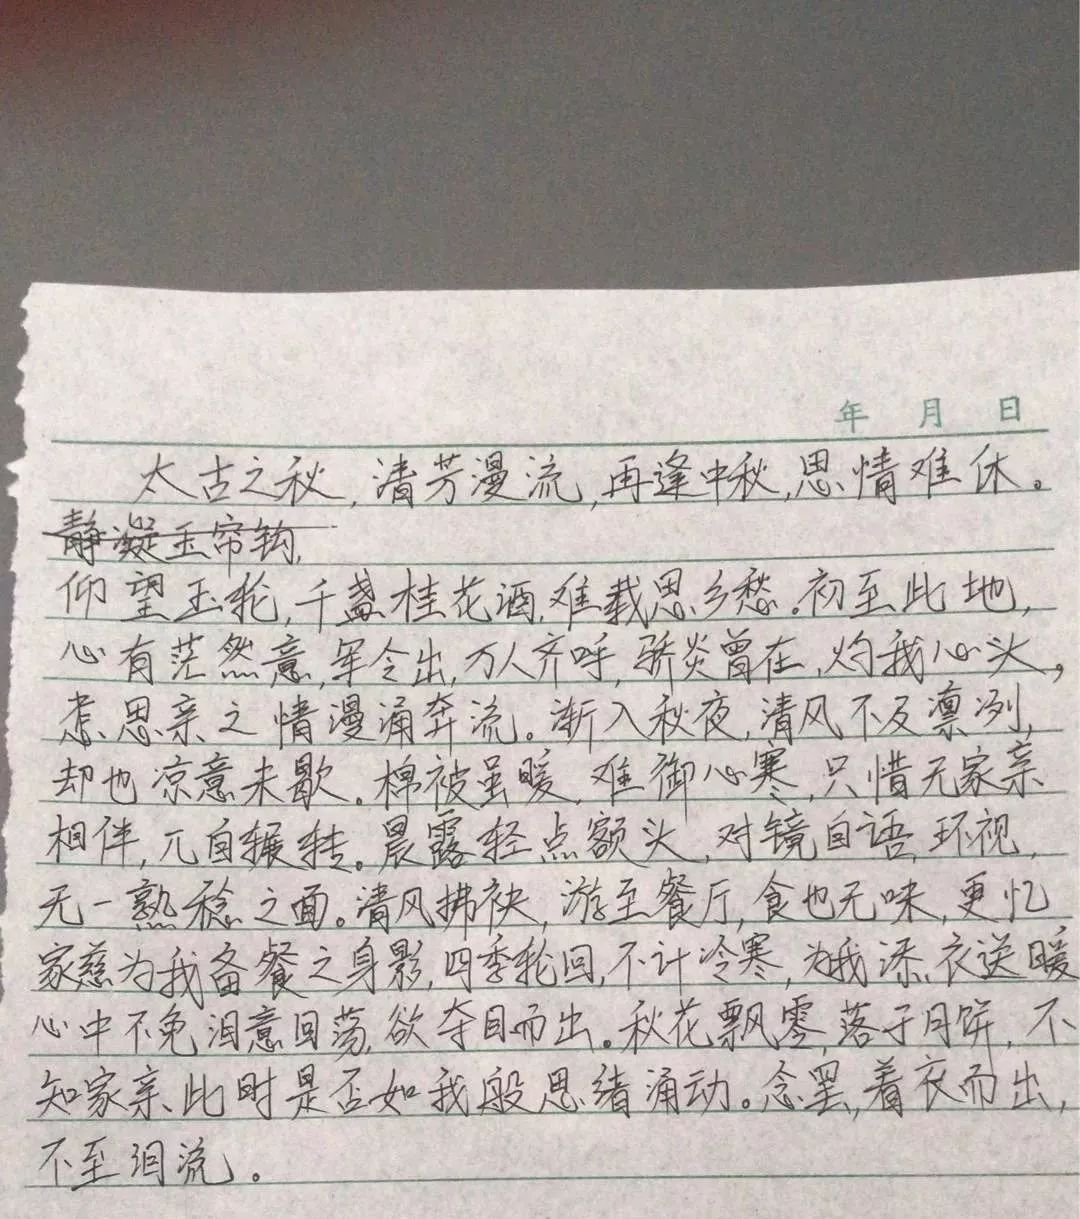 年 月 日
太古之秋,清芳漫流,再逢中秋,思情难休。
静凝玉帘钩,
仰望玉轮,千盏桂花酒,难载思乡愁。初至此地,
心有茫然意,军令出,万人齐呼,骄炎曾在,灼我心头,
思亲之情漫涌奔流。渐入秋夜,清风不及凛冽,
却也凉意未歇。棉被虽暖,难御心寒,只惜无家亲
相伴,兀自辗转。晨露轻点额头,对镜自语,环视,
无一熟稔之面。清风拂袂,游至餐厅,食也无味,更忆
家慈为我备餐之身影,四季轮回,不计冷寒,为我添衣送暖
心中不免泪意回荡,欲夺目而出。秋花飘零,落于月饼,不
知家亲此时是否如我般思绪涌动。念罢,着衣而出,
不至泪流。